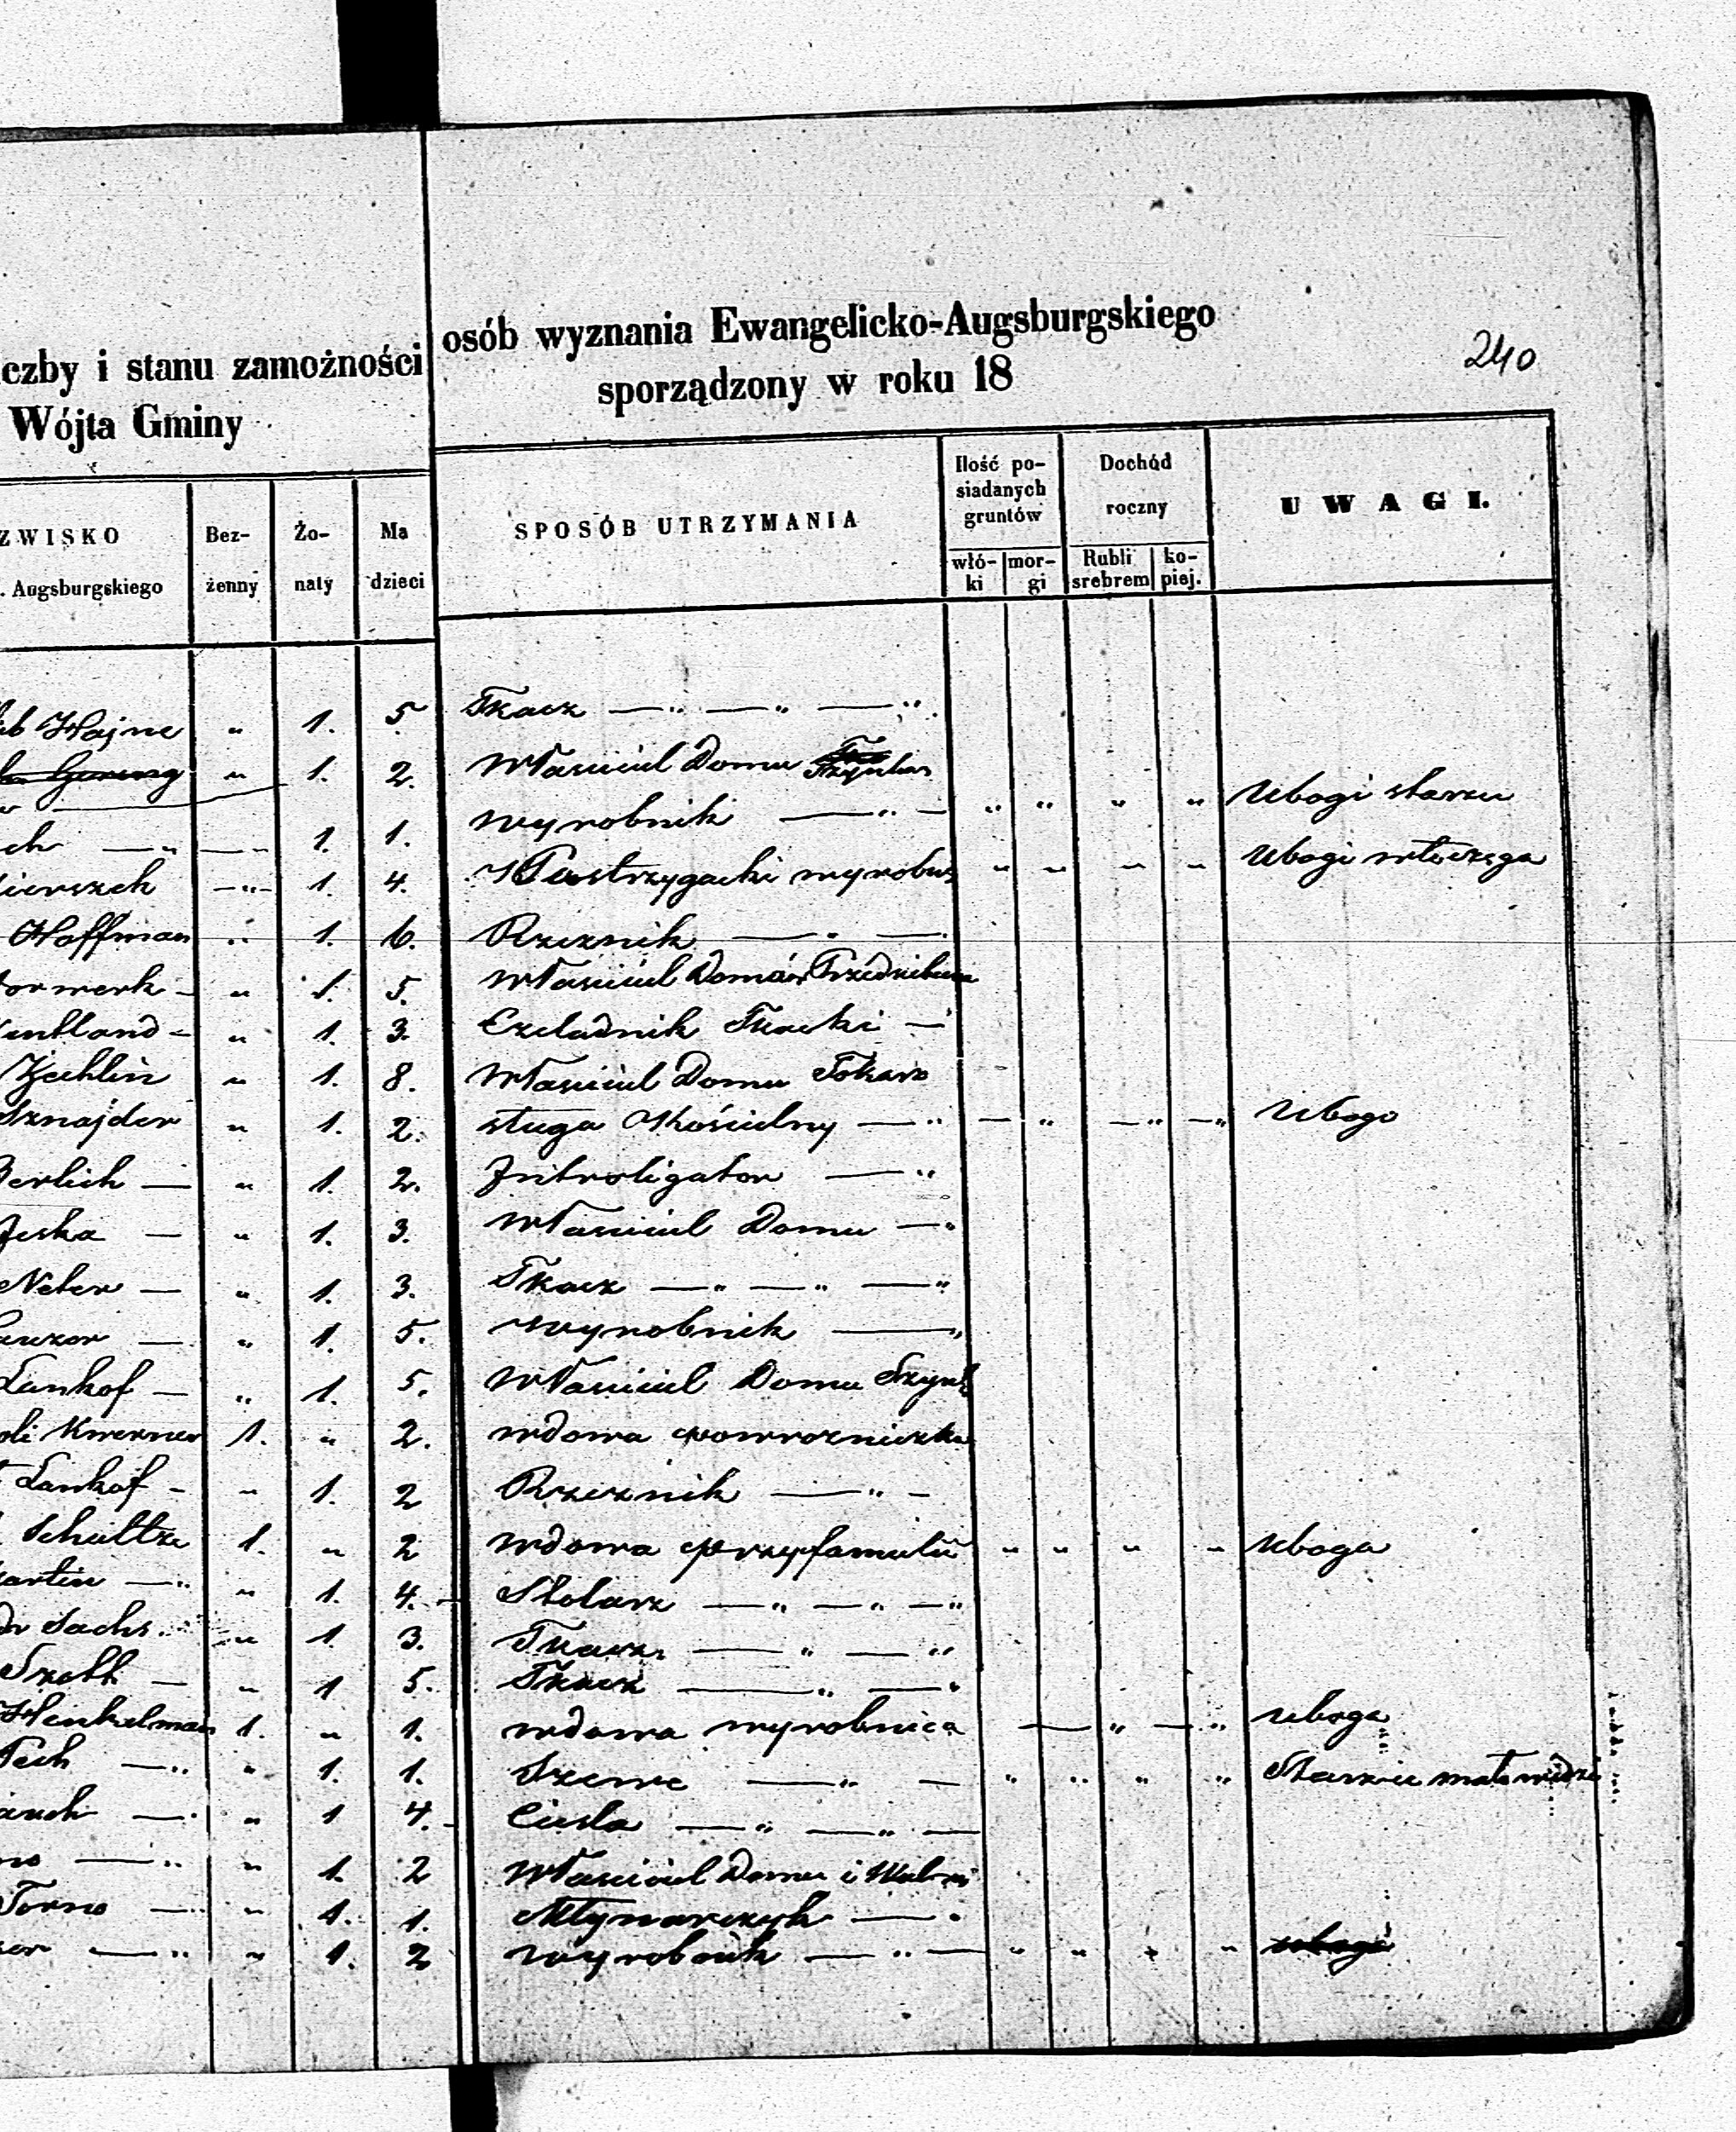 czby i stanu zamożności osób wyznania Ewangelicko-Augsburgskiego
Wójta Gminy sporządzony w roku 18
240
ZWISKO
. Augsburgskiego
Bez-
żenny
Żo-
naty
Ma
dzieci
SPOSÓB UTRZYMANIA
Ilość po-
siadanych
gruntów
włó-
ki
mor-
gi
Dochód
roczny
Rubli
srebrem
ko-
piej.
UWAGI.
Hajne " 1. 5 Tkacz — " — " — "
" 1. 2. Właściciel Domu
wyrobnik — " — " " " " Ubogi starzec
ch — " — " 1. 1.
ierszch — " — 1. 4. Postrzygacki wyrobn " " " " Ubogi włóczęga
Hoffman " 1. 6. Rzeznik — " —
orwerk — " 1. 5. Właściciel Domów
entland — " 1. 3. Czeladnik Tkacki —
Zechlin " 1. 8. Właściciel Domu Tokarz
Sznajder " 1. 2. sługa Kościelny — " — " — " — " Ubogi
Berlich — " 1. 2. Introligator — "
Jeska — " 1. 3. Właściciel Domu — "
Neter — " 1. 3. Tkacz — " — " — "
" 1. 5. wyrobnik — "
Lankof — " 1. 5. Właściciel Domu
1. " 2. wdowa powrozniczka
Lankof - " 1. 2 Rzeznik — " —
Schultze 1. " 2 wdowa przy familii " " " " uboga
artin — " " 1. 4. Stolarz — " — " — "
Sachs " 1 3. Tkacz — " — "
Szott — " 1 5. Tkacz — " — "
Henkelman 1. " 1. wdowa wyrobnica — " — " uboga
Tech — " " 1. 1. Szewc — " — " " " "
— " " 1 4. Ciesla — " — " —
— " " 1. 2 Właściciel Domu i
Torno — " " 1. 1. Młynarczyk — "
— " " 1. 2 wyrobnik — " — " " " " ubogi